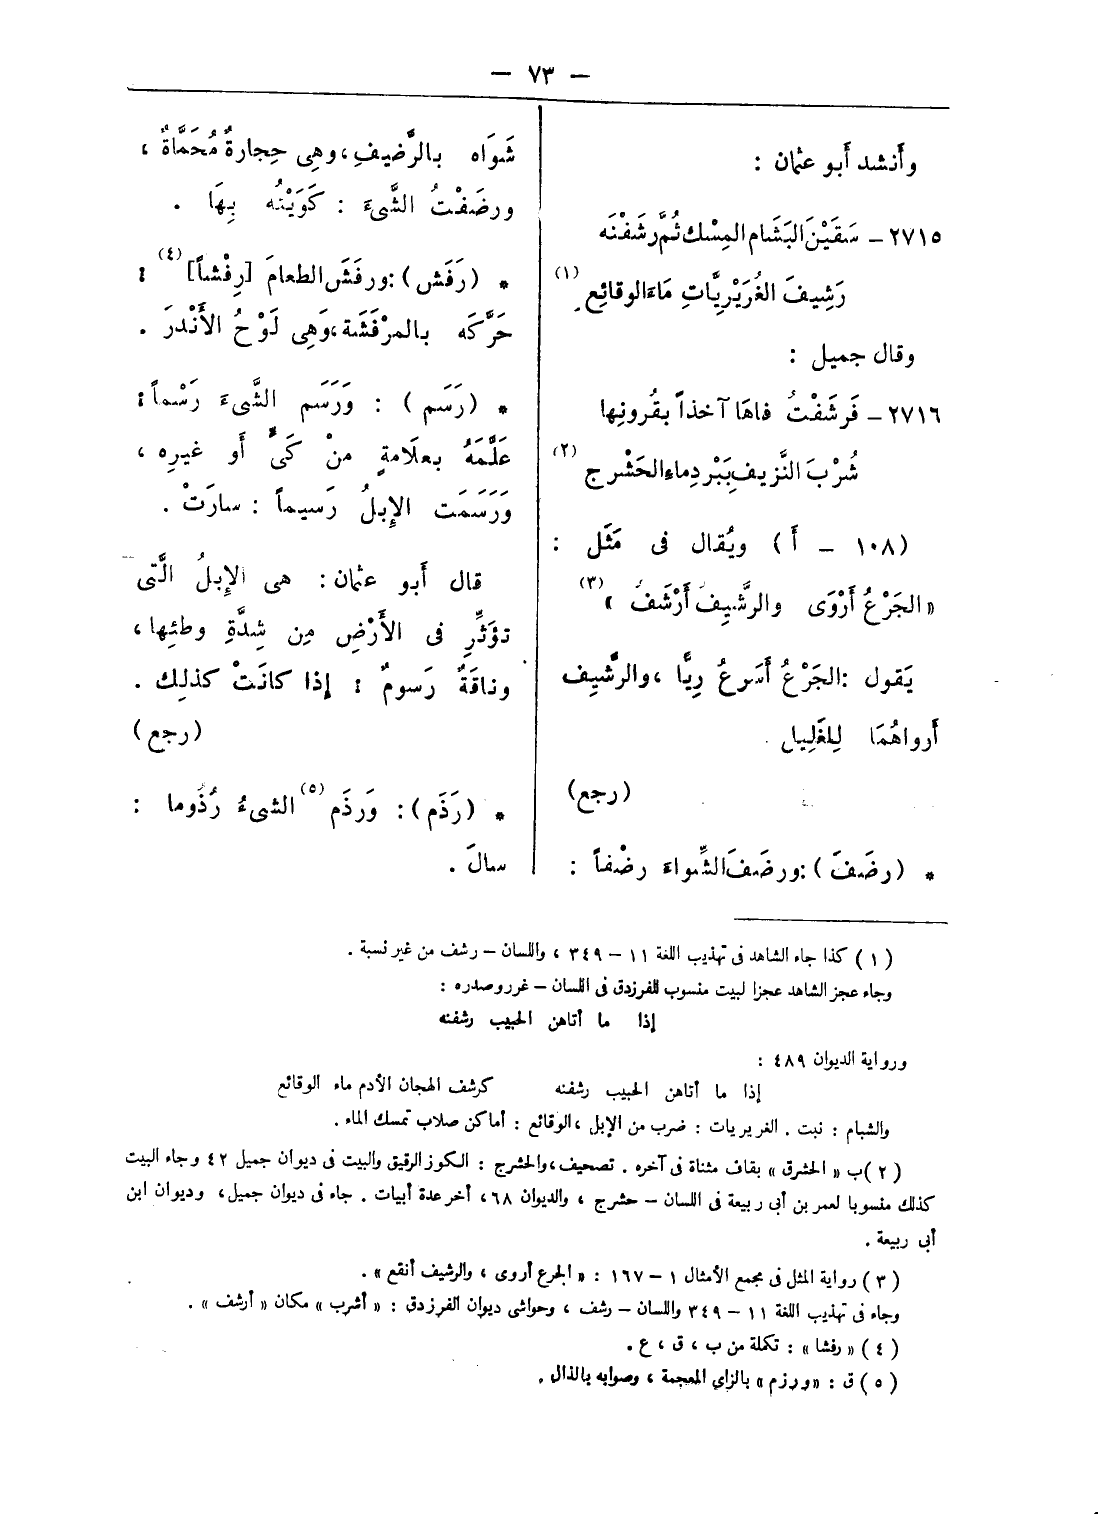 — ٧٣ —
وأَنشد أَبو عثمان :
٢٧١٥ – سَقَيْنَ البَشَام المِسْك ثُمَّ رَشَفْنَه
رَشِيفَ الغُرَيْرِيَّاتِ مَاءَ الوقائِع (١)
وقال جميل :
٢٧١٦ – فَرشَفْتُ فاهَا آخذاً بقُرونِها
شُرْبَ النَّزيف بِبَرْدِ ماءِ الحَشْرج (٢)
(١٠٨ – أ) ويُقال فى مَثَل :
«الجَرْعُ أَرْوَى والرَّشِيفُ أَرْشَفُ» (٣)
يَقول : الجَرْعُ أَسَرعُ رِيًّا ، والرشَّيِف
أَرواهُمَا لِلغَلِيل .
(رجع)
* (رضَفَ) : ورضَفَ الشِّواءَ رضْفاً :
شَوَاه بالرَّضيفِ ، وهِى حِجارةٌ مُحَمَّاةٌ ،
ورضَفْتُ الشَّىءَ : كَوَيْتُه بِهَا .
* (رَفَش) : ورفَشَ الطعامَ [رِفْشاً] (٤) :
حَرَّكَه بالمرْفَشَة ، وَهِى لَوْحُ الأَنْدرَ .
* (رَسَم) : وَرَسَم الشَّىءَ رَسْماً :
عَلَّمَهُ بعلَامةٍ منْ كَىٍّ أَو غيرِه ،
وَرَسَمَت الإِبلُ رَسيماً : سارَتْ .
قال أَبو عثمان : هى الإِبلُ الَّتى
تؤَثِّرِ فى الأَرْضِ مِن شِدَّةِ وطئِها ،
وناقَةٌ رَسومٌ : إذا كانَتْ كذلِك .
(رجع)
* (رَذَم) : وَرذَم (٥) الشىءُ رُذُوما :
سالَ .
(١) كذا جاء الشاهد فى تهذيب اللغة ١١ – ٣٤٩ ، واللسان – رشف من غير نسبة .
وجاء عجز الشاهد عجزا لبيت منسوب للفرزدق فى اللسان – غرر وصدره :
إذا ما أتاهن الحبيب رشفنه
ورواية الديوان ٤٨٩ :
إذا ما أتاهن الحبيب رشفنه كرشف الهجان الأدم ماء الوقائع
والشبام : نبت . الغريريات : ضرب من الإبل ، الوقائع : أماكن صلاب تمسك الماء .
(٢) ب « الحشرق » بقاف مثناة فى آخره . تصحيف ، والحشرج : الكوز الرقيق والبيت فى ديوان جميل ٤٢ وجاء البيت
كذلك منسوبا لعمر بن أبى ربيعة فى اللسان – حشرج ، والديوان ٦٨ ، أخر عدة أبيات . جاء فى ديوان جميل ، وديوان ابن
أبى ربيعة .
(٣) رواية المثل فى مجمع الأمثال ١ – ١٦٧ : « الجرع أروى ، والرشيف أنقع » .
وجاء فى تهذيب اللغة ١١ – ٣٤٩ واللسان – رشف ، وحواشى ديوان الفرزدق : « أشرب » مكان « أرشف » .
(٤) « رفشا » : تكملة من ب ، ق ، ع .
(٥) ق : «ورزم» بالزاي المعجمة ، وصوابه بالذال .